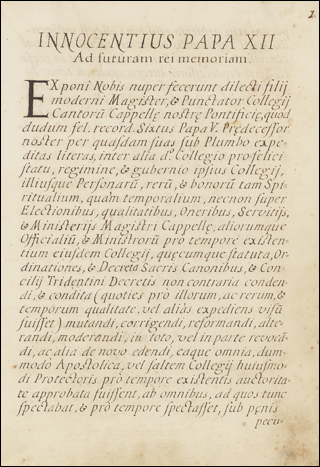 1.
INNOCENTIUS PAPA XII
Ad futuram rei memoriam.
EXponi Nobis nuper fecerunt dilecti filij
moderni Magister, & Punctator Collegij
Cantorũ Cappellę nostrę Pontificię, quod
dudum fel. record. Sixtus Papa V. Predecessor
noster per quasdam suas sub Plumbo expe-
ditas literas, inter alia d.º Collegio pro felici
statu, regimine, & gubernio ipsius Collegij,
illiusque Personarũ, rerũ, & bonorũ tam Spi-
ritualium, quàm temporalium, necnon super
Electionibus, qualitatibus, Oneribus, Servitijs,
& Ministerijs Magistri Cappellę, aliorumque
Officialiũ, & Ministrorũ pro tempore existen-
tium eiusdem Collegij, quęcumque statuta, Or-
dinationes, & Decreta Sacris Canonibus, & Con-
cilij Tridentini Decretis non contraria conden-
di, & condita (quoties pro illorum, ac rerum, &
temporum qualitate, vel aliàs expediens visũ
fuisset) mutandi, corrigendi, reformandi, alte-
randi, moderandi, in toto, vel in parte revocã-
di, ac alia de novo edendi, eaque omnia, dum-
modo Apostolica, vel saltem Collegij huiusmo-
di Protectoris pro tempore existentis auctorita-
te approbata fuissent, ab omnibus, ad quos tunc
spectabat, & pro tempore spectasset, sub pęnis
pecu-